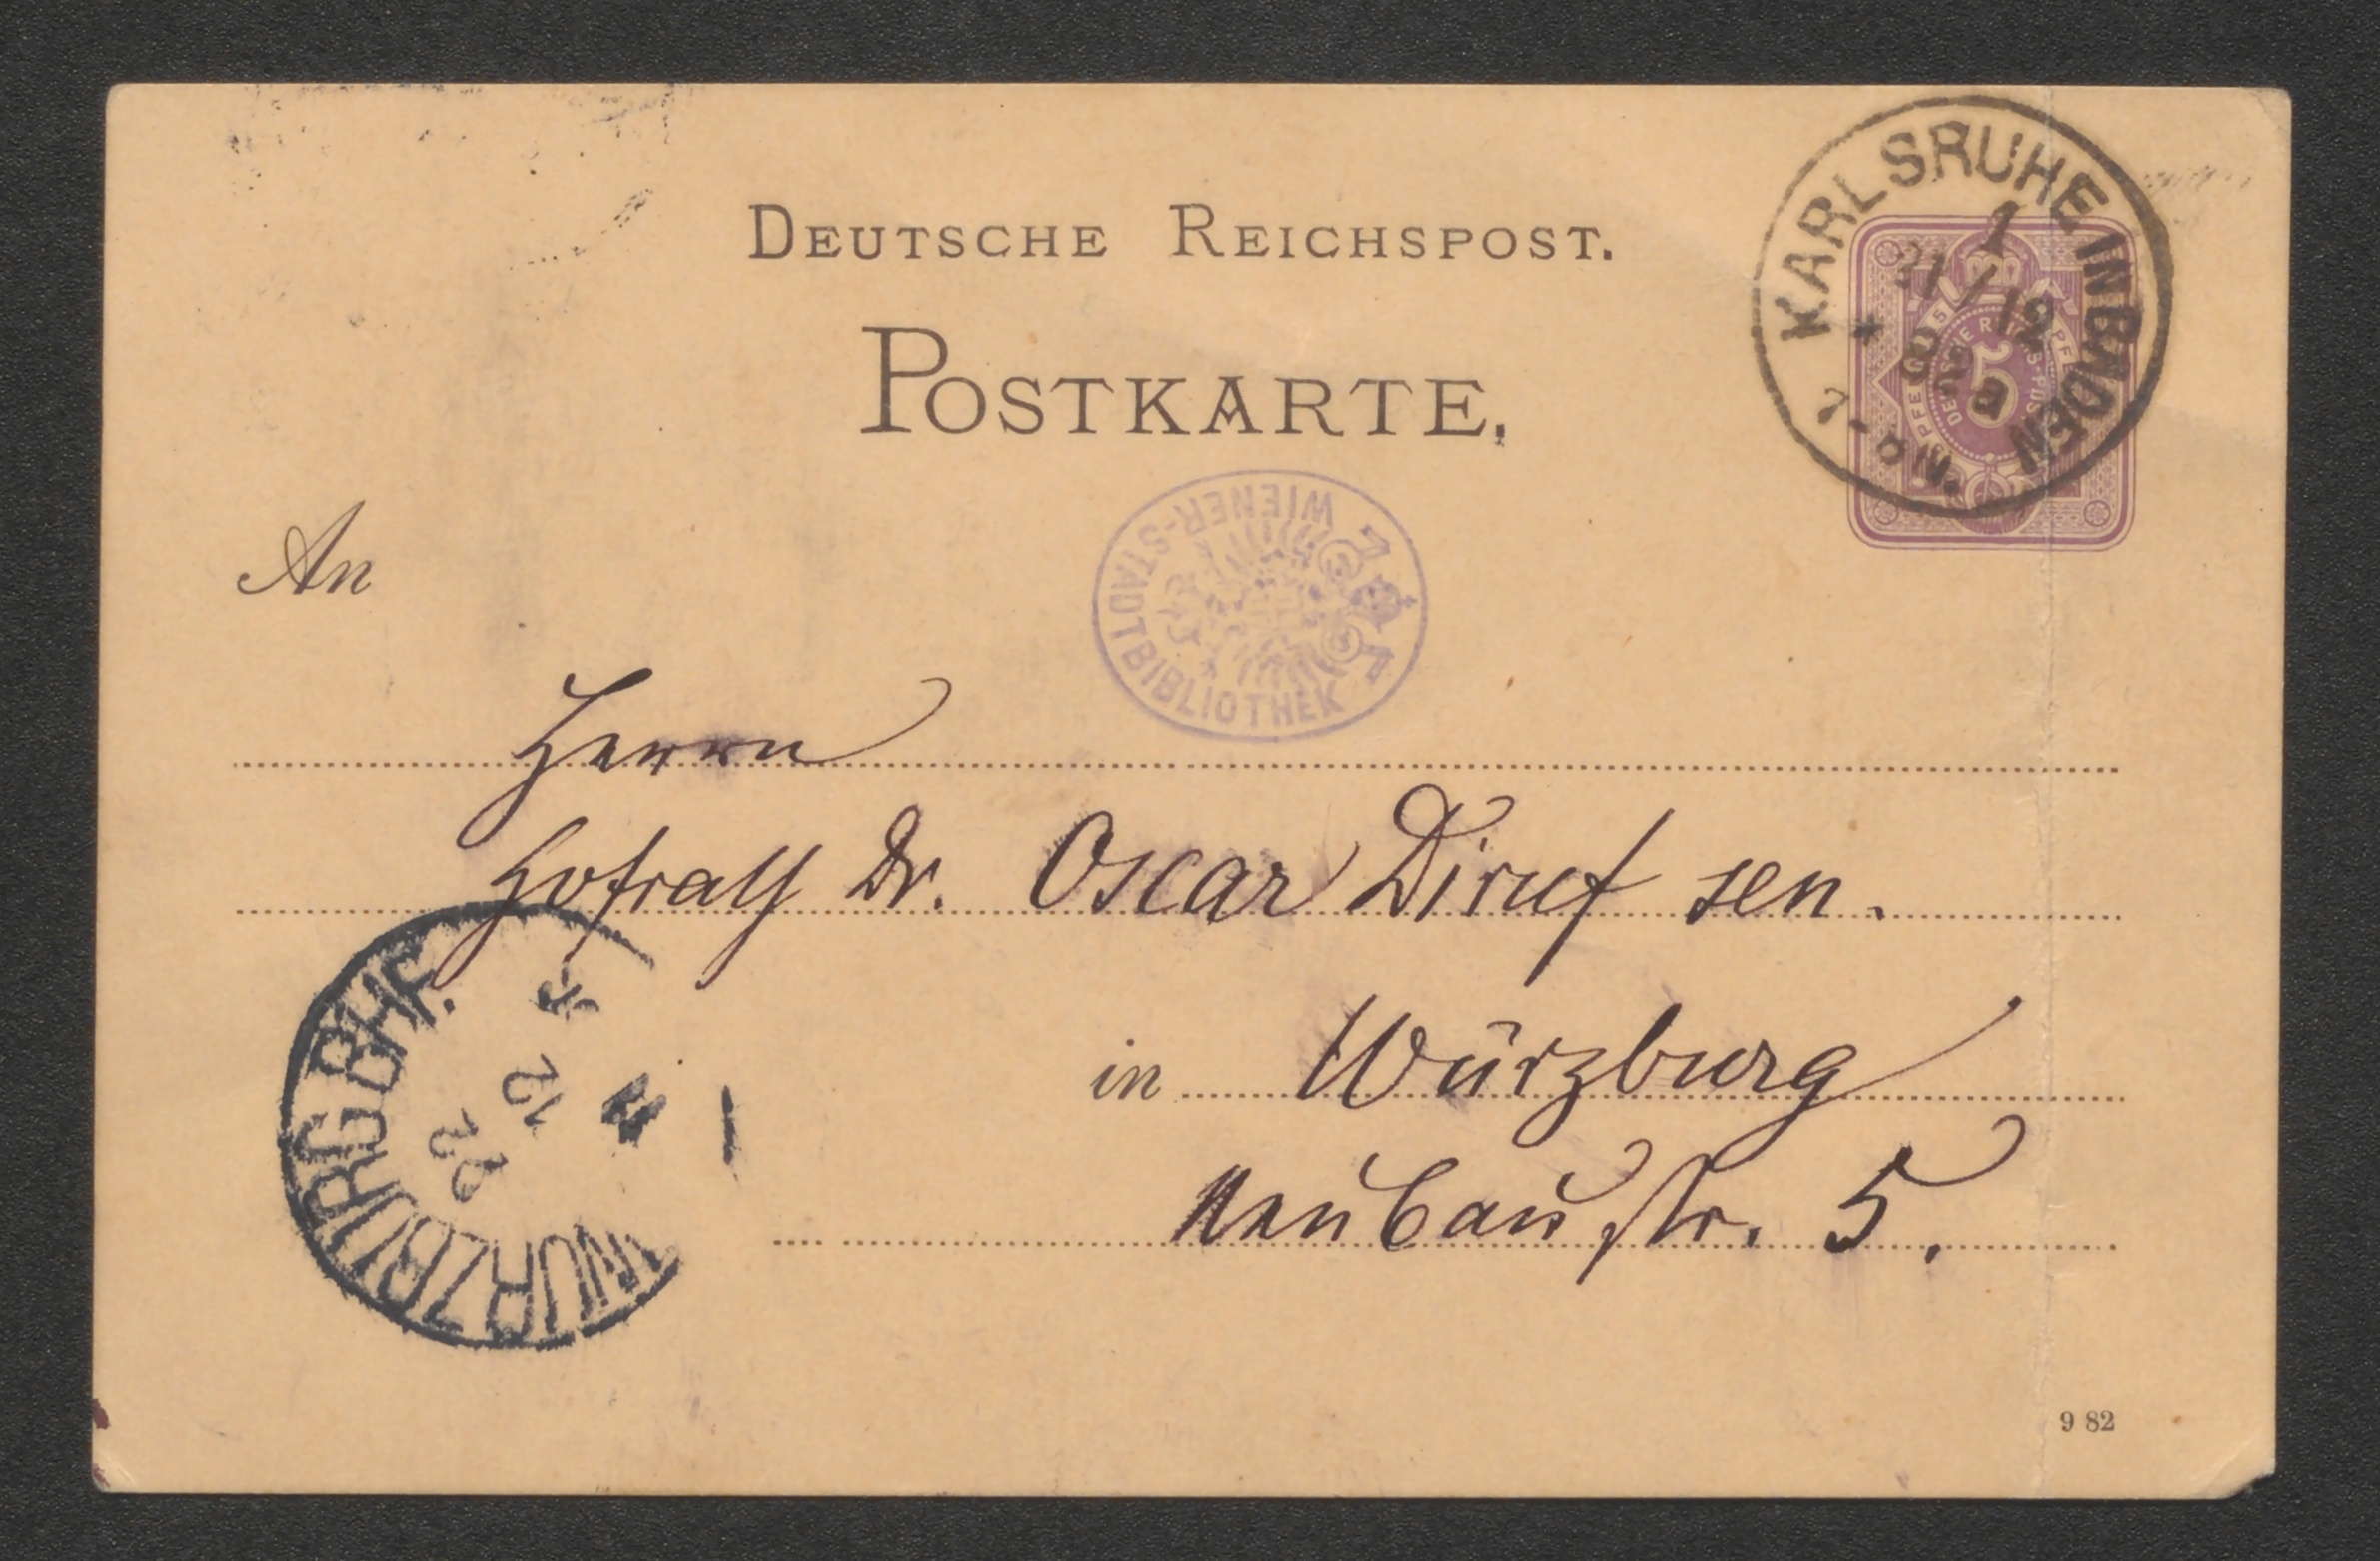 DEUTSCHE REICHSPOST.
POSTKARTE.
KARLSRUHE IN BADEN
1
21/12
82
7-8 N.
5
WIENER-STADTBIBLIOTHEK
An
Herrn
Hofrath Dr. Oscar Diruf sen.
in Würzburg
Neubaustr. 5.
WÜRZBURG BHF.
22
12
9 82